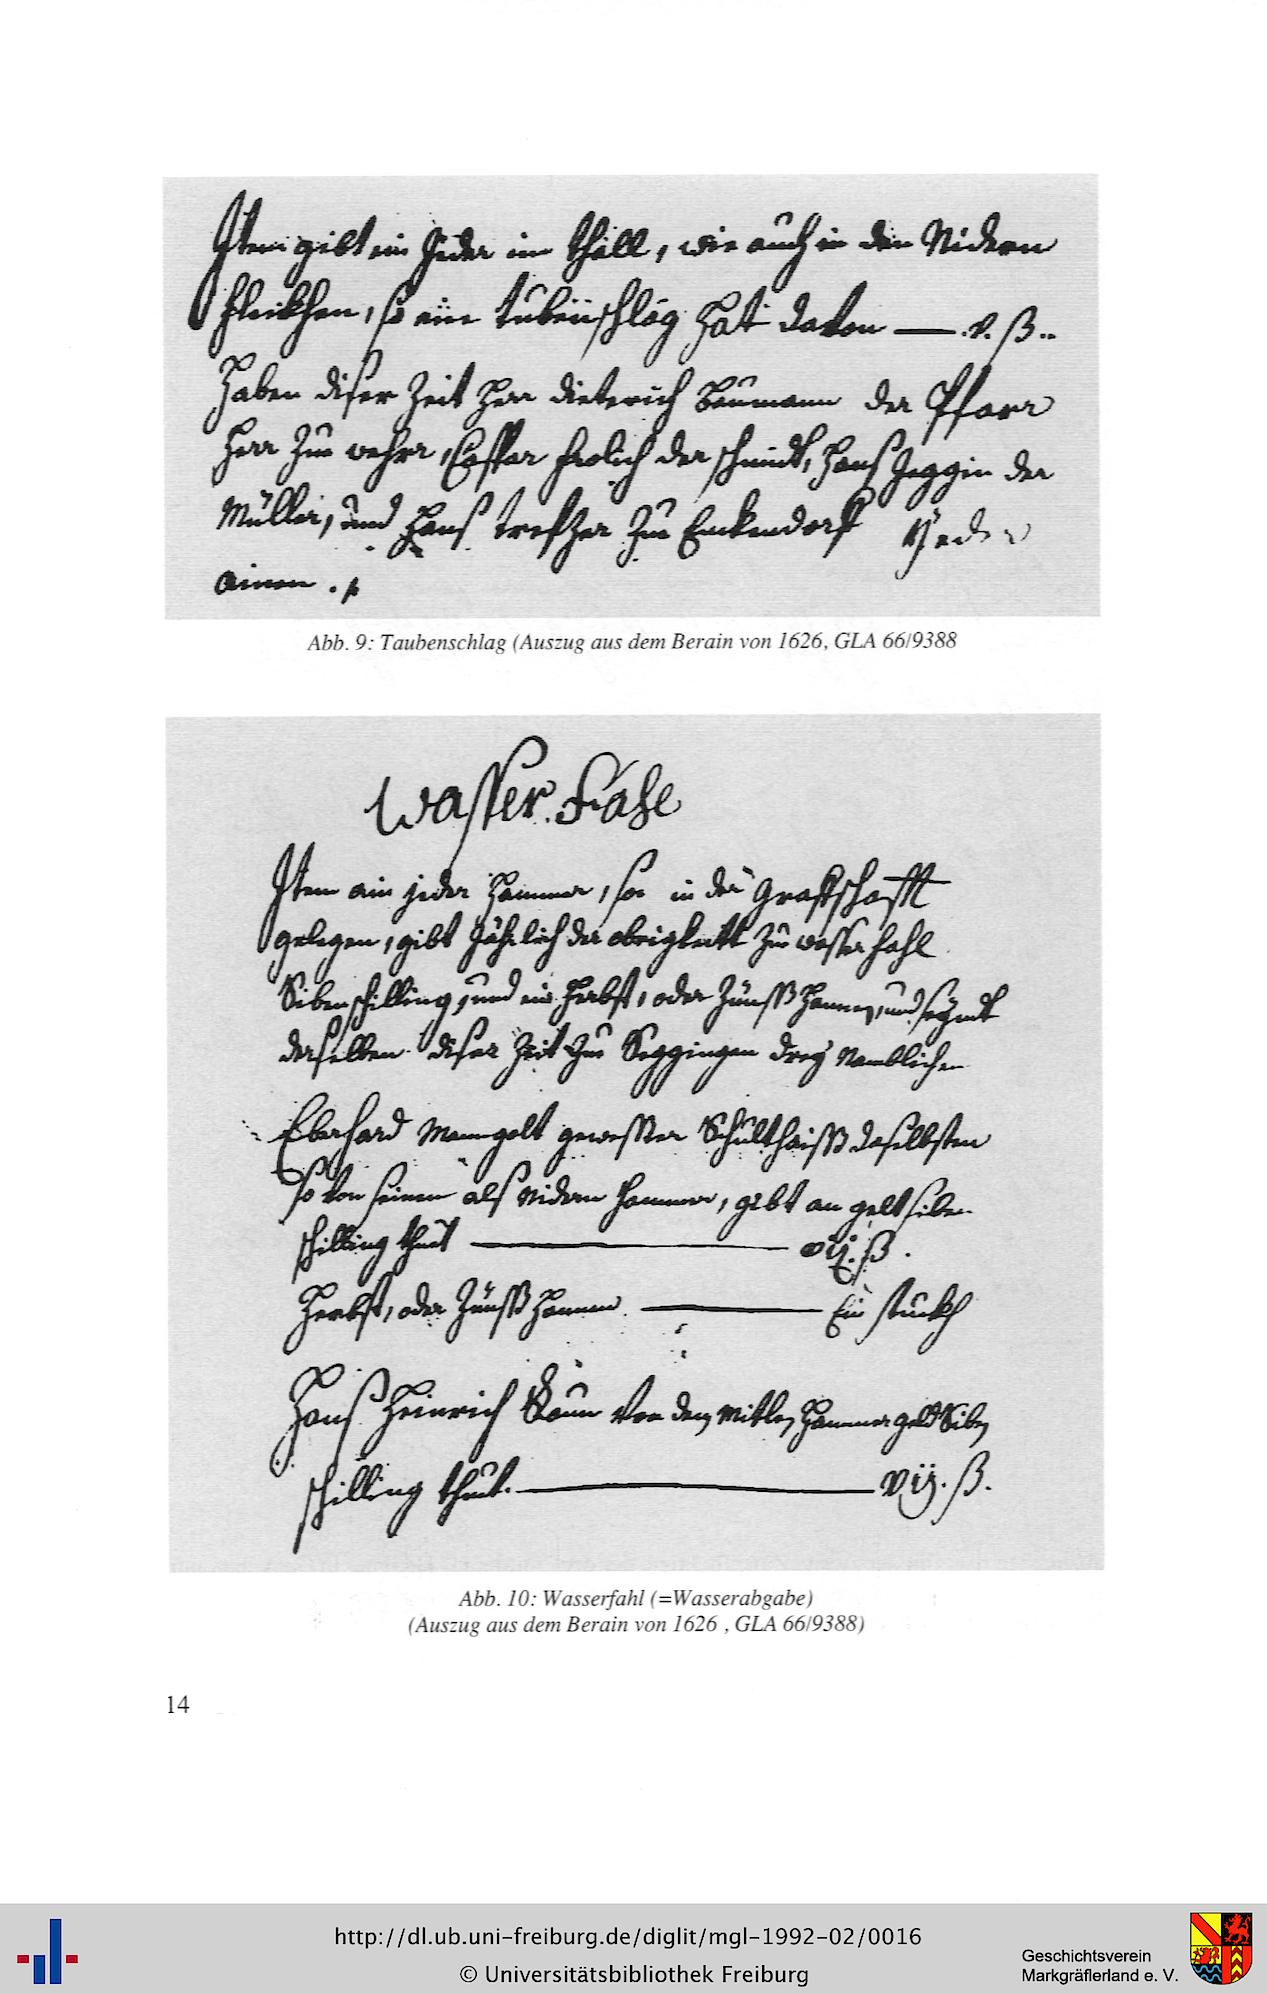 Item gibt ein Jeder im thall, wie auch in den Nidern
fleckhen, so ein tubenschlag hat davon — .v. ß..
Haben diser Zeit Herr dieterich Baumann der Pfarr
Herr Zue wehr, Caspar frolich der schmidt, Hanß Jeggin der
Müller, und Hanß trefzer Zue Enkendorf yeder
ainen .
Abb. 9: Taubenschlag (Auszug aus dem Berain von 1626, GLA 66/9388
Wasser Fahl
Item ain jeder Hammer, so in der Graffschafft
gelegen, gibt Jährlich der obrigkeitt Zue wasserfahl
Siben schilling, und ein Herbst, oder Zünß Hammen, und seyndt
derselben diser Zeit Zue Seggingen drey Namblichen
Eberhard Manngolt gewesster Schulthaiß daselbsten
so von seinem als Nidern Hammer, gibt an gelt siben
schilling thuet — vij. ß.
Herbst, oder Zünß Hammen. — Ein stuckh
Hanß Heinrich von dem Mitlen Hammer geldt Siben
schilling thut. — vij. ß.
Abb. 10: Wasserfahl (=Wasserabgabe)
(Auszug aus dem Berain von 1626 , GLA 66/9388)
14
http://dl.ub.uni-freiburg.de/diglit/mgl-1992-02/0016
© Universitätsbibliothek Freiburg
Geschichtsverein
Markgräflerland e. V.